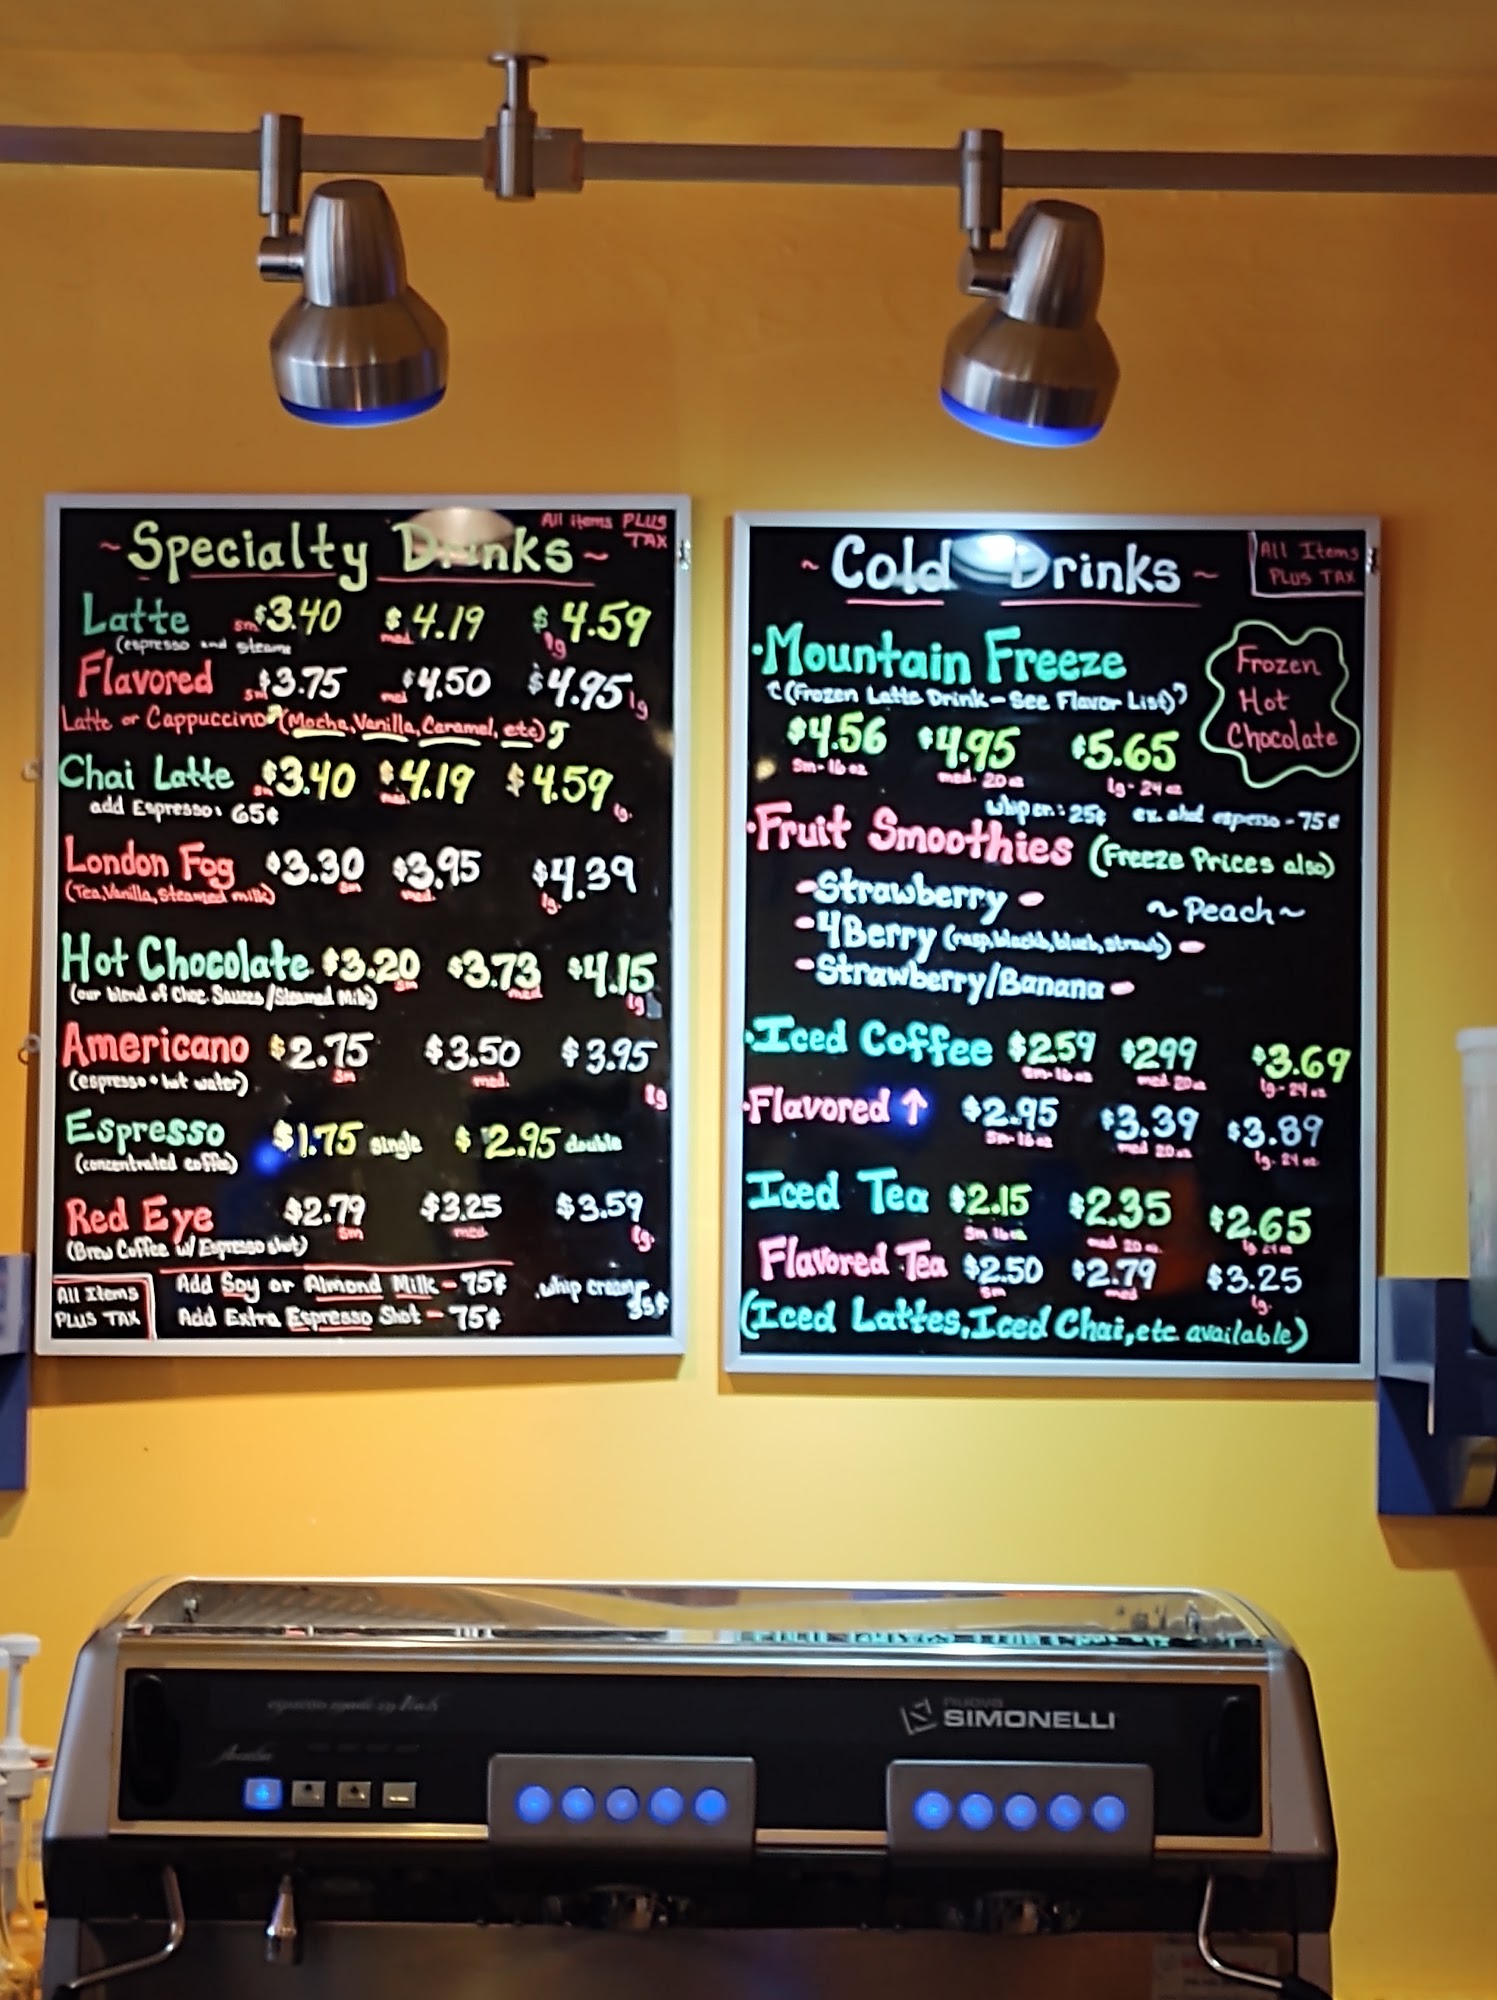 ~Specialty Drinks~
All items PLUS
TAX
Latte sm $3.40 med. $4.19 $4.59 lg
(espresso and steam
Flavored sm $3.75 med $4.50 $4.95 lg
Latte or Cappuccino (Mocha, Vanilla, Caramel, etc)
Chai Latte sm $3.40 med. $4.19 $4.59 lg.
add Espresso: 65¢
London Fog $3.30 sm $3.95 med. $4.39 lg.
(Tea, Vanilla, Steamed milk)
Hot Chocolate $3.20 sm $3.73 med $4.15 lg
(our blend of Choc. Sauces/Steamed Milk)
Americano $2.75 sm $3.50 med. $3.95 lg
(espresso + hot water)
Espresso $1.75 single $2.95 double
(concentrated coffee)
Red Eye $2.79 sm $3.25 med. $3.59 lg.
(Brew Coffee w/ Espresso shot)
All Items
PLUS TAX
Add Soy or Almond Milk - 75¢
Add Extra Espresso Shot - 75¢
whip cream
35¢
~Cold Drinks~
All Items
PLUS TAX
·Mountain Freeze
(Frozen Latte Drink - See Flavor List)
$4.56 $4.95 $5.65
Sm-16oz med. 20oz lg-24oz
Frozen
Hot
Chocolate
whip cr: 25¢ ex. shot espresso - 75¢
·Fruit Smoothies (Freeze Prices also)
-Strawberry-
~Peach~
-4Berry (rasp, blackb, blueb, strawb)-
-Strawberry/Banana-
·Iced Coffee $2.59 $2.99 $3.69
Sm-16oz med. 20oz lg-24oz
·Flavored ↑ $2.95 $3.39 $3.89
Sm-16oz med 20oz lg-24oz
Iced Tea $2.15 $2.35 $2.65
Sm 16oz med 20oz. lg 24oz
Flavored Tea $2.50 $2.79 $3.25
sm med lg.
(Iced Lattes, Iced Chai, etc available)
nuova
SIMONELLI